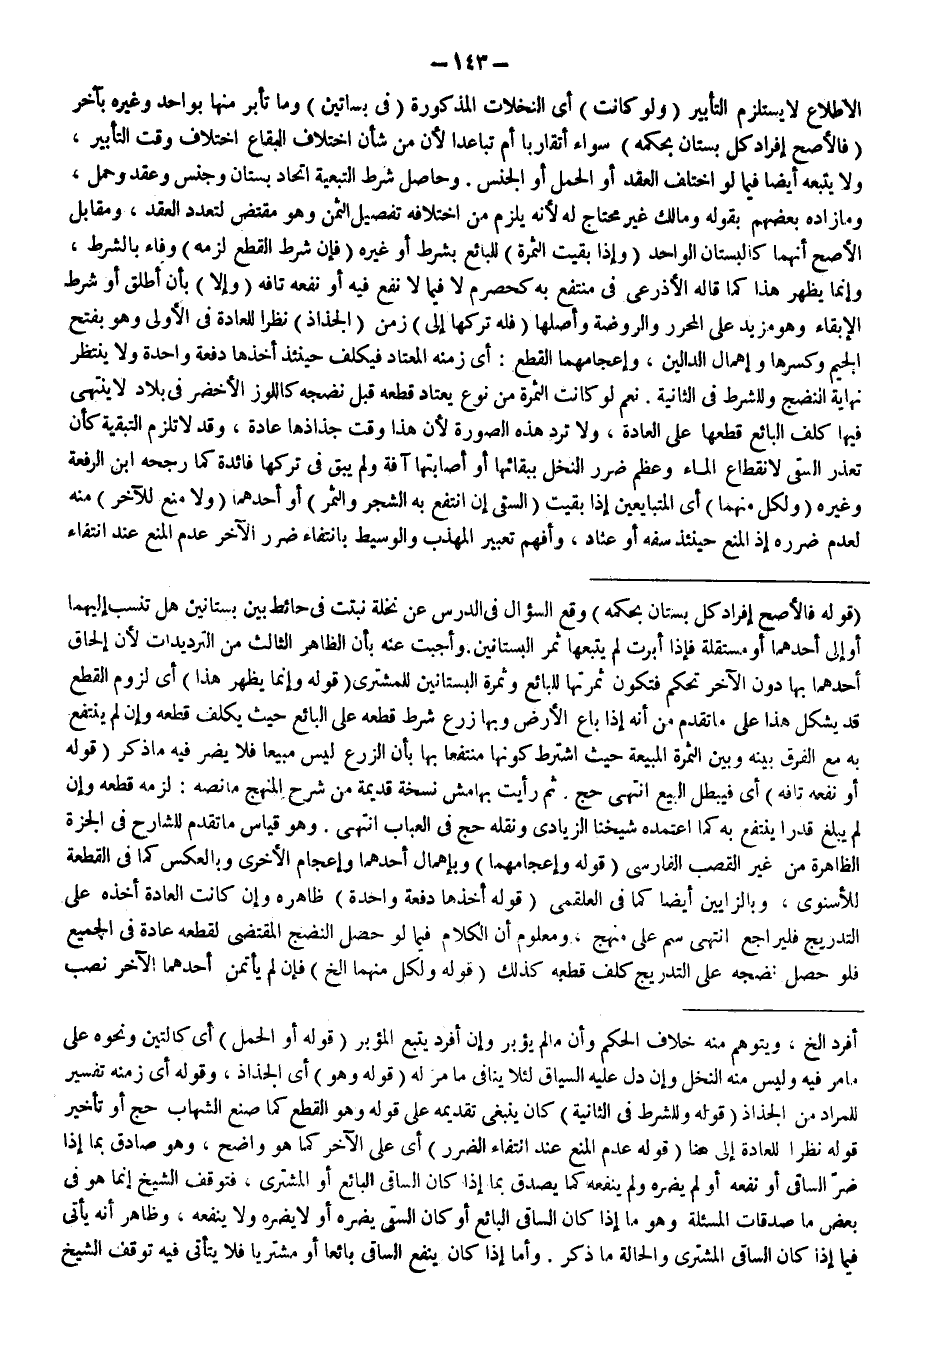 – ١٤٣ –
الاطلاع لايستلزم التأبير ( ولو كانت ) أى النخلات المذكورة ( فى بساتين ) وما تأبر منها بواحد وغيره بآخر
( فالأصح إفراد كل بستان بحكمه ) سواء أتقاربا أم تباعدا لأن من شأن اختلاف البقاع اختلاف وقت التأبير ،
ولا يتبعه أيضا فيا لو اختلف العقد أو الحمل أو الجنس . وحاصل شرط التبعية اتحاد بستان وجنس وعقد وحمل ،
ومازاده بعضهم بقوله ومالك غير محتاج له لأنه يلزم من اختلافه تفصيل الثمن وهو مقتض لتعدد العقد ، ومقابل
الأصح أنهما كالبستان الواحد ( وإذا بقيت الثمرة ) للبائع بشرط أو غيره ( فإن شرط القطع لزمه ) وفاء بالشرط ،
وإنما يظهر هذا كما قاله الأذرعى فى منتفع به كحصرم لا فيا لا نفع فيه أو نفعه تافه ( وإلا ) بأن أطلق أو شرط
الإبقاء وهو مزيد على المحرر والروضة وأصلها ( فله تركها إلى ) زمن ( الجذاذ ) نظرا للعادة فى الأولى وهو بفتح
الجيم وكسرها و إهمال الدالين ، وإعجامهما القطع : أى زمنه المعتاد فيكلف حينئذ أخذها دفعة واحدة ولا ينتظر
نهاية النضج وللشرط فى الثانية . نعم لو كانت الثمرة من نوع يعتاد قطعه قبل نضجه كاللوز الأخضر فى بلاد لاينتهى
فيها كلف البائع قطعها على العادة ، ولا ترد هذه الصورة لأن هذا وقت جذاذها عادة ، وقد لاتلزم التبقية كأن
تعذر السقى لانقطاع المـاء وعظم ضرر النخل ببقائها أو أصابتها آفة ولم يبق فى تركها فائدة كما رجحه ابن الرفعة
وغيره ( ولكل منهما ) أى المتبايعين إذا بقيت ( السقى إن انتفع به الشجر والثمر ) أو أحدهما ( ولا منع للآخر ) منه
لعدم ضرره إذ المنع حينئذ سفه أو عناد ، وأفهم تعبير المهذب والوسيط بانتفاء ضرر الآخر عدم المنع عند انتفاء
(قوله فالأصح إفراد كل بستان بحكمه ) وقع السؤال فى الدرس عن نخلة نبتت فى حائط بين بستانين هل تنسب إليهما
أو إلى أحدهما أو مستقلة فإذا أبرت لم يتبعها ثمر البستانين . وأجبت عنه بأن الظاهر الثالث من الترديدات لأن إلحاق
أحدهما بها دون الآخر تحكم فتكون ثمرتها للبائع وثمرة البستانين للمشترى ( قوله وإنما يظهر هذا ) أى لزوم القطع
قد يشكل هذا على ماتقدم من أنه إذا باع الأرض وبها زرع شرط قطعه على البائع حيث يكلف قطعه وإن لم ينتفع
به مع الفرق بينه وبين الثمرة المبيعة حيث اشترط كونها منتفعا بها بأن الزرع ليس مبيعا فلا يضر فيه ماذكر ( قوله
أو نفعه تافه ) أى فيبطل البيع انتهى حج . ثم رأيت بهامش نسخة قديمة من شرح المنهج مانصه : لزمه قطعه وإن
لم يبلغ قدرا ينتفع به كما اعتمده شيخنا الزيادى ونقله حج فى العباب انتهى . وهو قياس ماتقدم للشارح فى الجزة
الظاهرة من غير القصب الفارسى ( قوله وإعجامهما ) وبإهمال أحدهما وإعجام الأخرى وبالعكس كما فى القطعة
للأسنوى ، وبالزايين أيضا كما فى العلقمى ( قوله أخذها دفعة واحدة ) ظاهره وإن كانت العادة أخذه على
التدريج فليراجع انتهى سم على منهج ، ومعلوم أن الكلام فيا لو حصل النضج المقتضى لقطعه عادة فى الجميع
فلو حصل نضجه على التدريج كلف قطعه كذلك ( قوله ولكل منهما الخ ) فإن لم يأتمن أحدهما الآخر نصب
أفرد الخ ، ويتوهم منه خلاف الحكم وأن مالم يؤبر وإن أفرد يتبع المؤبر ( قوله أو الحمل ) أى كالتين ونحوه على
مامر فيه وليس منه النخل وإن دل عليه السياق لئلا ينافى ما مر له ( قوله وهو ) أى الجذاذ ، وقوله أى زمنه تفسير
للمراد من الجذاذ ( قوله وللشرط فى الثانية ) كان ينبغى تقديمه على قوله وهو القطع كما صنع الشهاب حج أو تأخير
قوله نظرا للعادة إلى هنا ( قوله عدم المنع عند انتفاء الضرر ) أى على الآخر كما هو واضح ، وهو صادق بما إذا
ضرّ الساقى أو نفعه أو لم يضره ولم ينفعه كما يصدق بما إذا كان الساقى البائع أو المشترى ، فتوقف الشيخ إنما هو فى
بعض ما صدقات المسئلة وهو ما إذا كان الساقى البائع أو كان السقى يضره أو لايضره ولا ينفعه ، وظاهر أنه يأتى
فيا إذا كان الساقى المشترى والحالة ما ذكر . وأما إذا كان ينفع الساقى بائعا أو مشتريا فلا يتأتى فيه توقف الشيخ